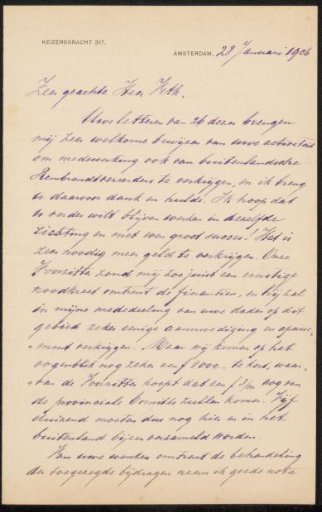 KEIZERSGRACHT 317.
AMSTERDAM, 28 Januari 1906
Zeer geachte Heer Veth.
Uwe letteren van 26 dezer brengen
mij zeer welkome bewijzen van uwe activiteit
om medewerking ook van buitenlandsche
Rembrandtvereerders te verkrijgen, en ik breng
u daarvoor dank en hulde. Ik hoop dat
u wilt blijven werken in dezelfde
richting en met even groot succes! Het is
zeer noodig meer geld te verkrijgen. Onze
Voorzitter zond mij hoe juist een ernstige
noodkreet omtrent de financien, en hij zal
in mijne mededeeling van uwe daden op dat
gebied zeker eenige aanmoediging en
verkrijgen! Maar wij komen op het
oogenblik nog zeker een f 8000.- te kort, waar-
van de Voorzitter hoopt dat een f 3/m nog van
de provinciale Comités zullen komen. Vijf
duizend moeten dus nog hier en in het
buitenland bijeen verzameld worden.
Van uwe wenken omtrent de behandeling
der toegezegde bijdragen neem ik goede nota